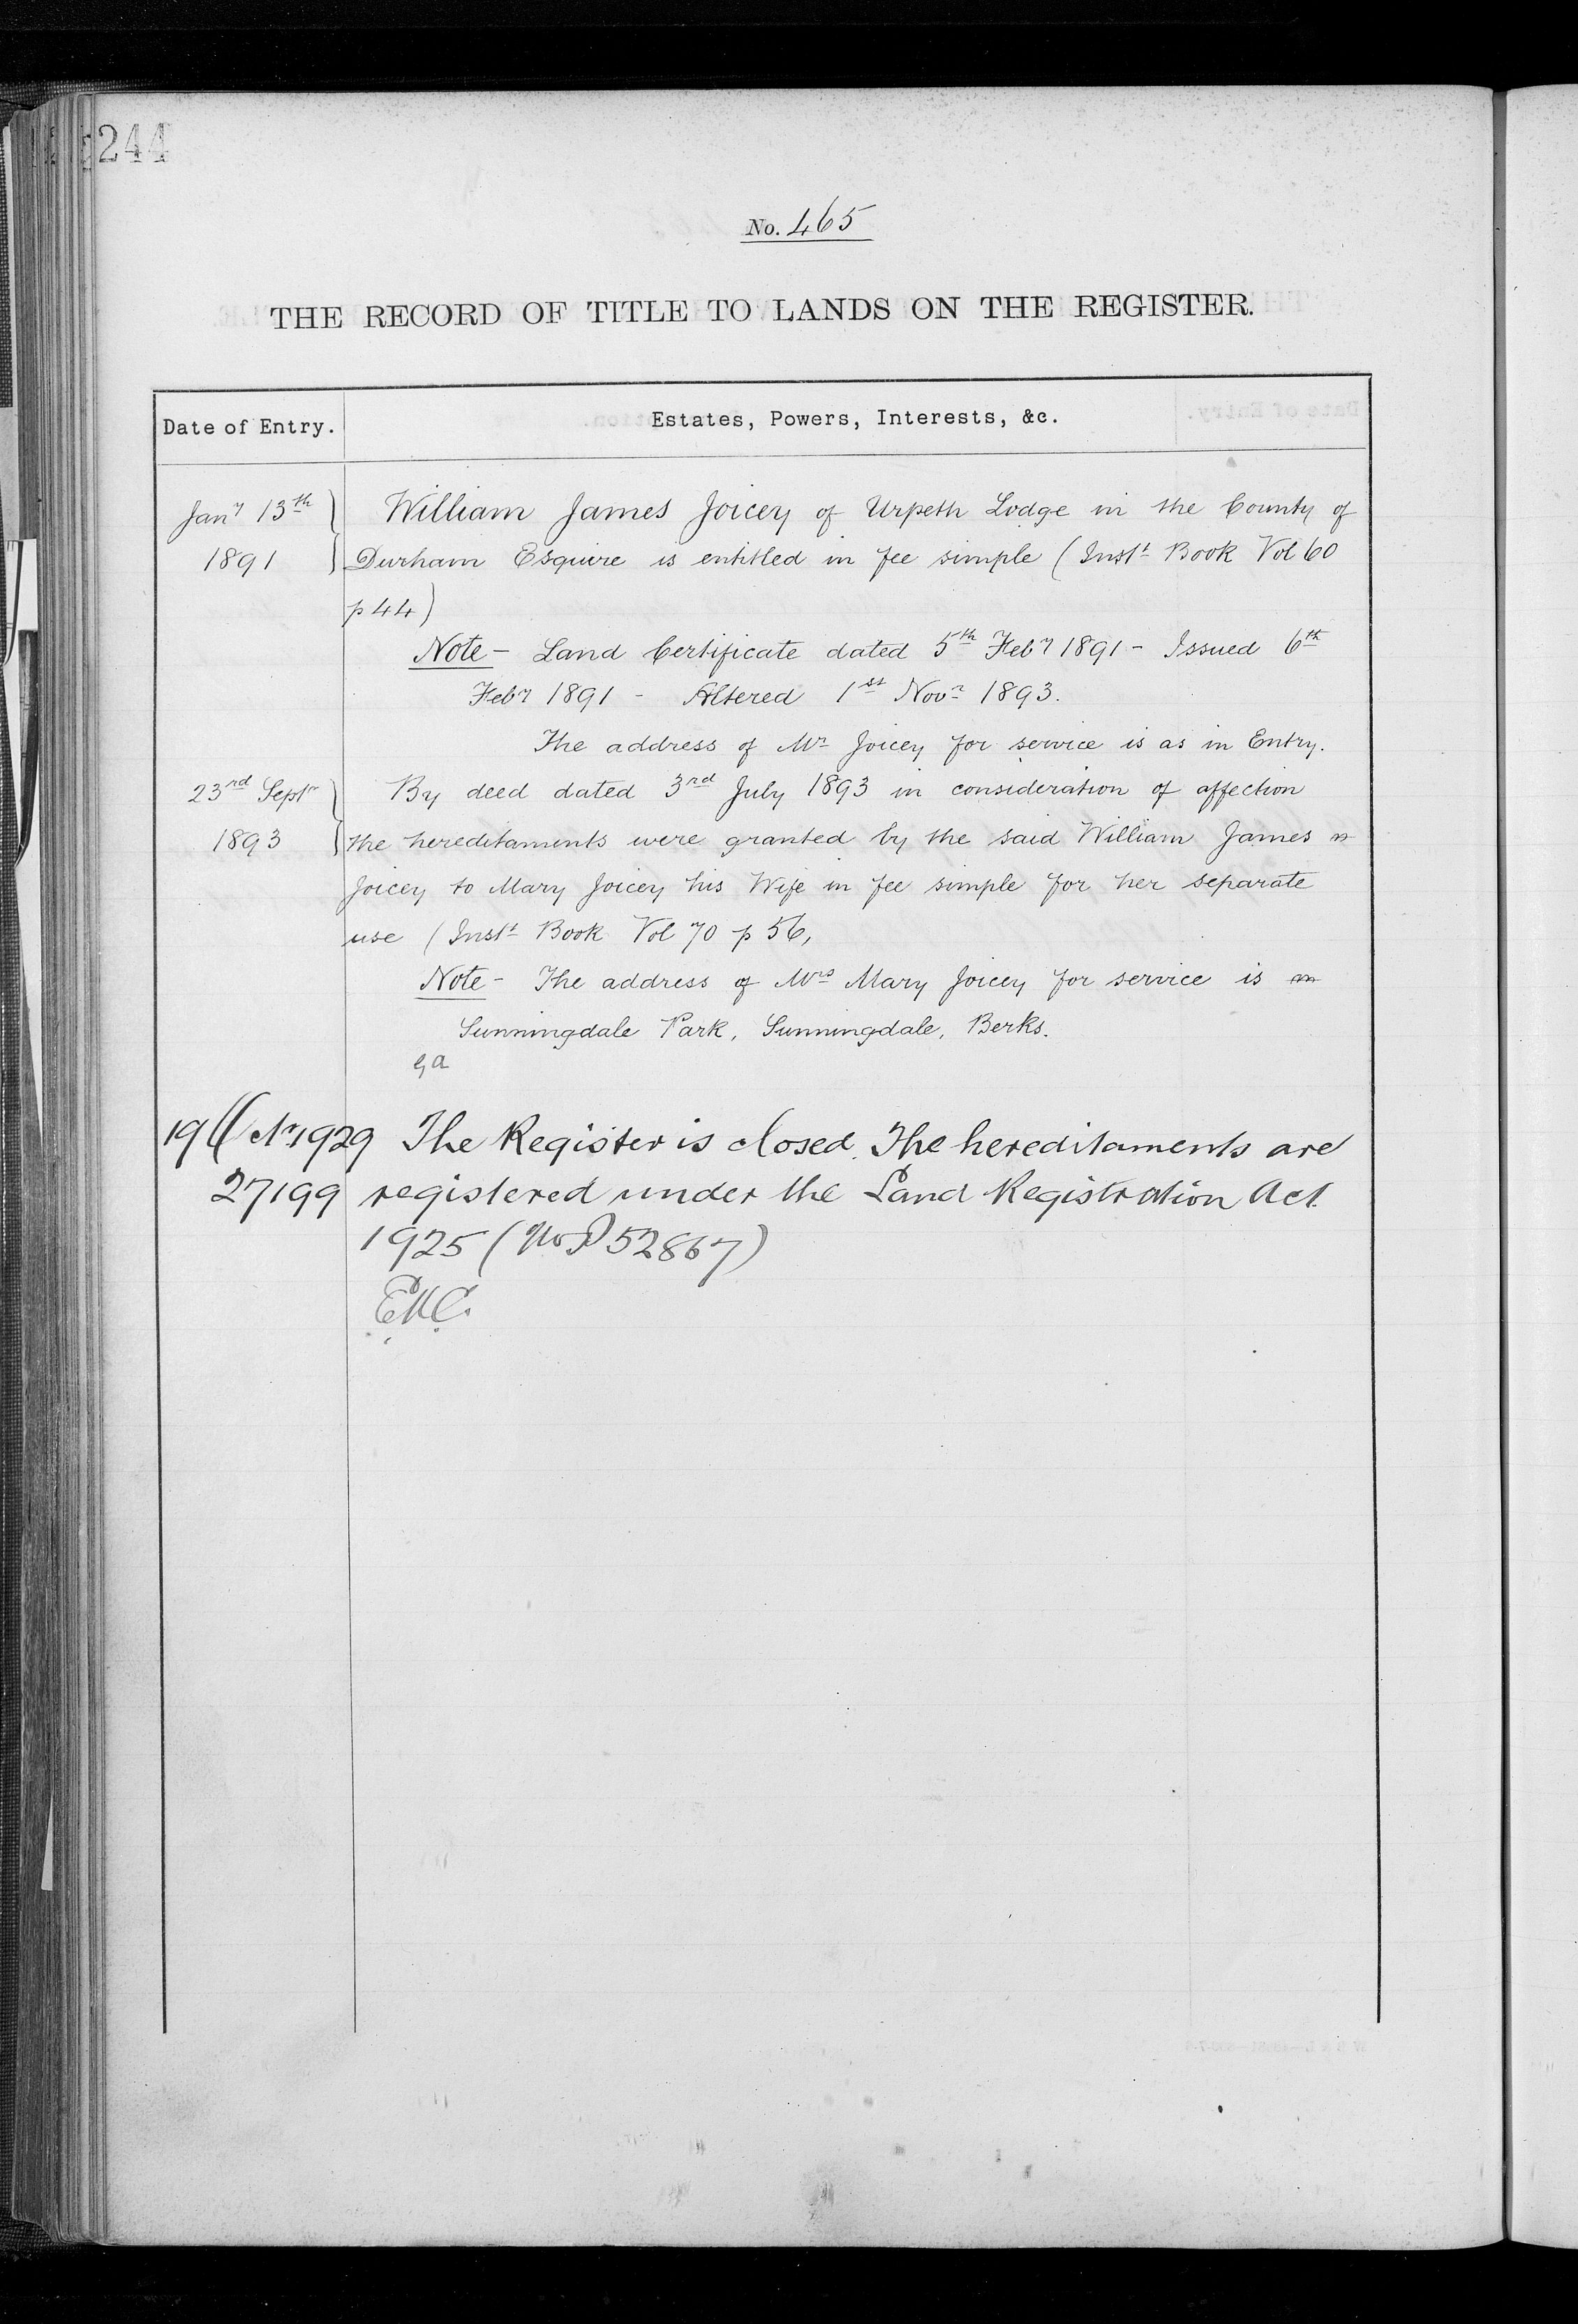 244
No. 465
THE RECORD OF TITLE TO LANDS ON THE REGISTER.
Date of Entry. Estates, Powers, Interests, &c.
Jany 13th William James Joicey of Urpeth Lodge in the County of
1891 Durham Esquire is entitled in fee simple (Instt Book Vol 60
p 44)
Note - Land Certificate dated 5th Feby 1891 - Issued 6th
Feby 1891 - Altered 1st Novr 1893.
The address of Mr Joicey for service is as in Entry.
23rd Septr By deed dated 3rd July 1893 in consideration of affection
1893 the hereditaments were granted by the said William James
Joicey to Mary Joicey his Wife in fee simple for her separate
use (Instt Book Vol 70 p 56,
Note - The address of Mrs Mary Joicey for service is
Sunningdale Park, Sunningdale, Berks.
19 1929 The Register is closed. The hereditaments are
27199 registered under the Land Registration Act
1925 (No P 52867)